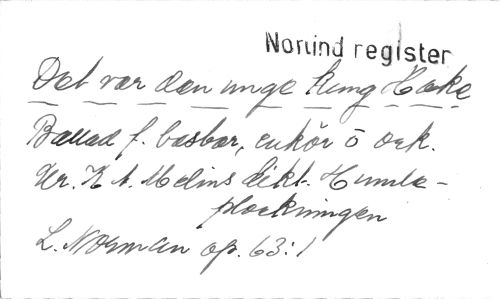 Norlind register
Det var den unge kung Hake
Ballad f. basbar, enkör o ork.
Ur. K A. Melins dikt. Humle-
plockningen
L. Norman op. 63:1